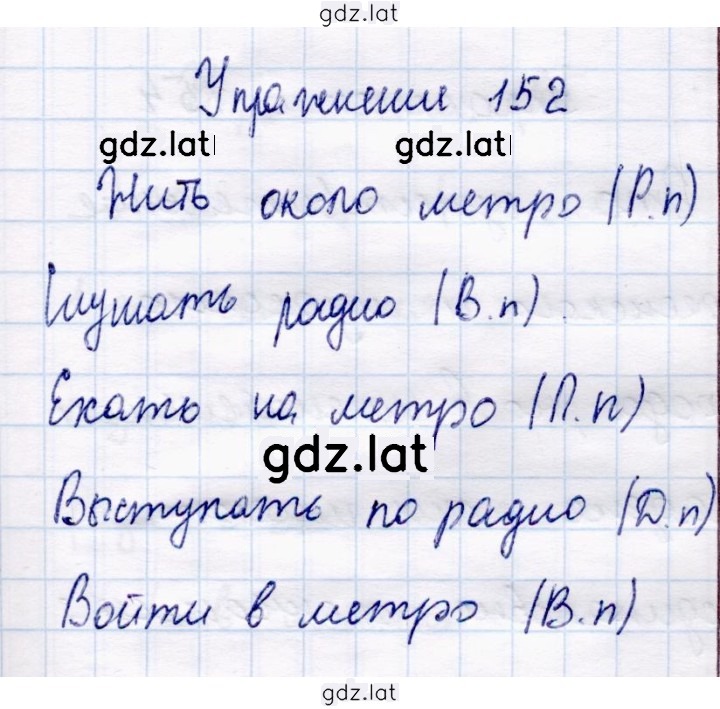 gdz.lat
Упражнение 152
gdz.lat gdz.lat
Жить около метро (Р.п)
Слушать радио (В.п)
Ехать на метро (П.п)
gdz.lat
Выступать по радио (Д.п)
Войти в метро (В.п)
gdz.lat